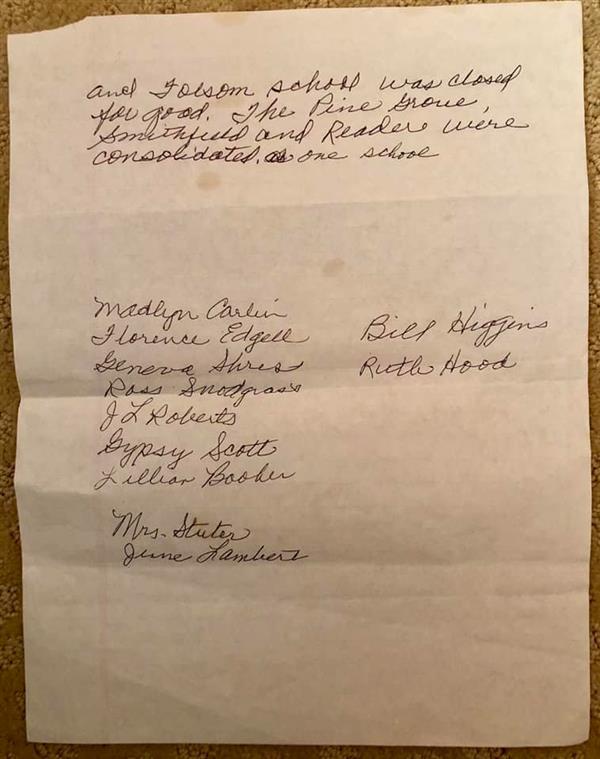 and Folsom school was closed
for good. The Pine Grove,
Smithfield and Reader were
consolidated. as one school
Madlyn Carlin
Florence Edgell
Bill Higgins
Geneva
Ruth Hood
Ross Snodgrass
J L Roberts
Gypsy Scott
Lillian Booher
Mrs.
June Lambert